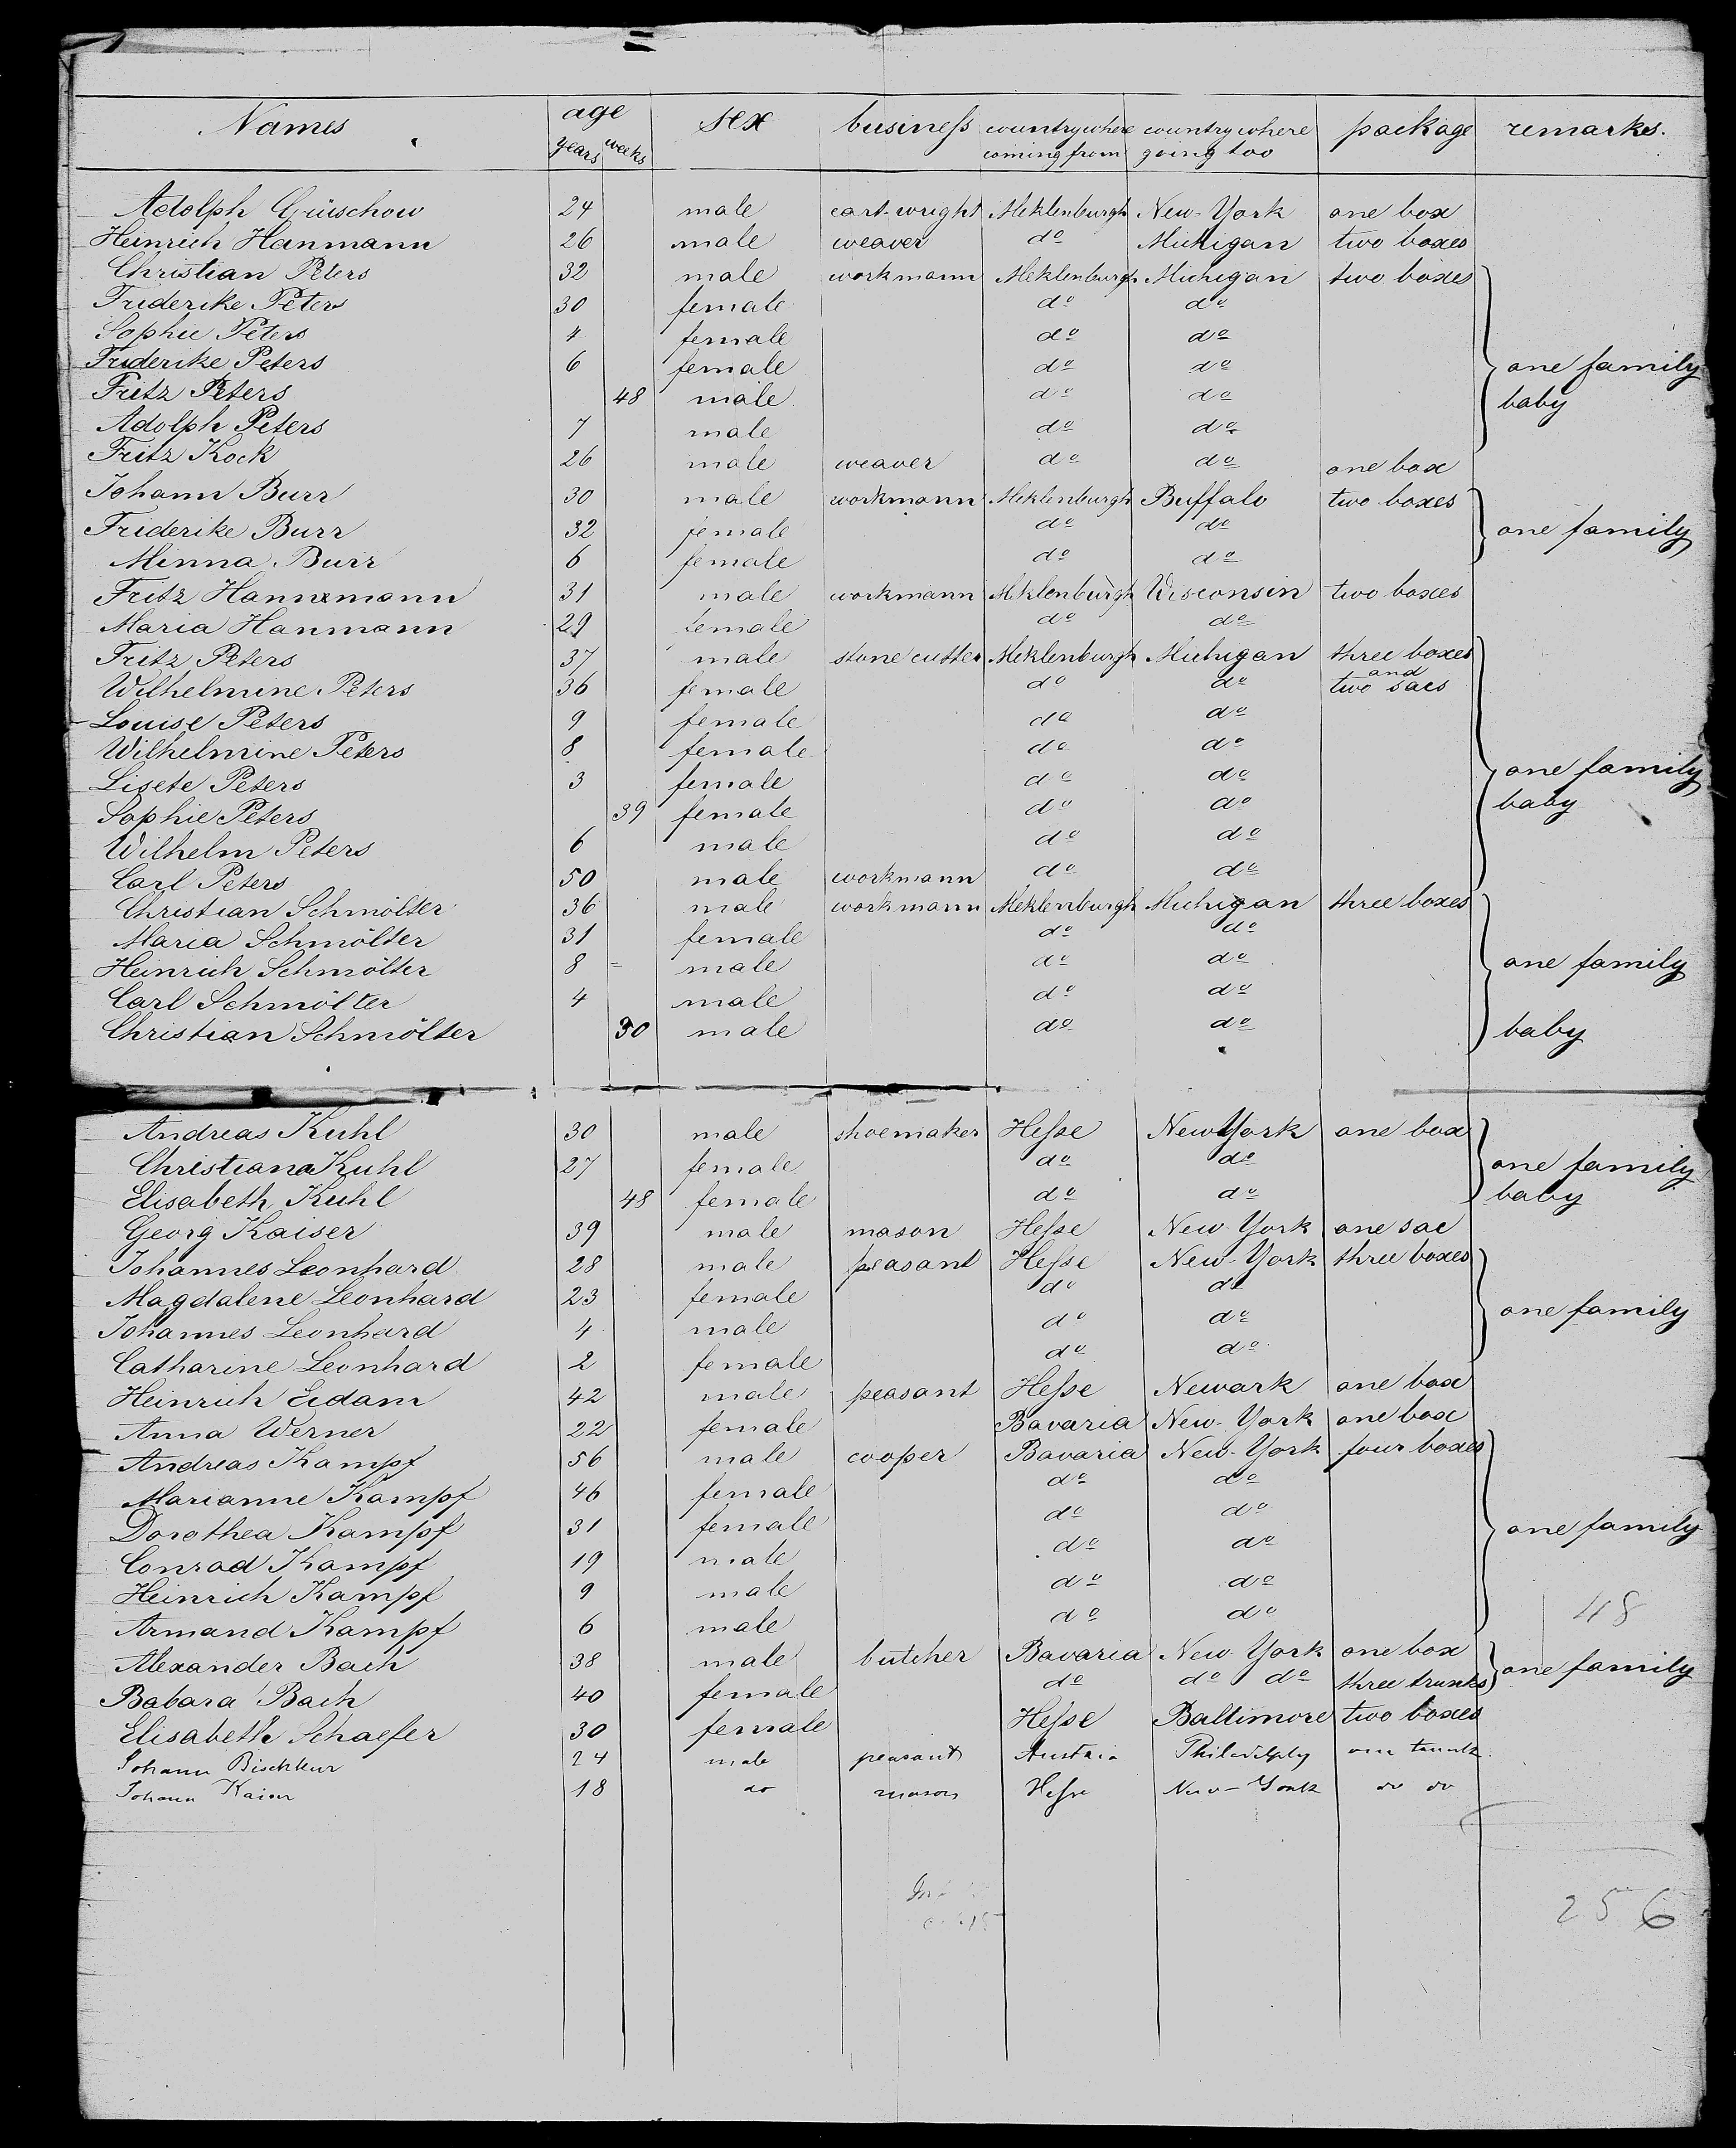 Names age sex business country where country where package remarks.
years weeks coming from going too
Adolph Grüschow 24 male cart-wright Meklenburgh New-York one box
Heinrich Hanmann 26 male weaver do Michigan two boxes
Christian Peters 32 male workmann Meklenburgh Michigan two boxes
Friderike Peters 30 female do do
Sophie Peters 4 female do do
Friderike Peters 6 female do do one family
Fritz Peters 48 male do do baby
Adolph Peters 7 male do do
Fritz Kock 26 male weaver do do one box
Johann Burr 30 male workmann Meklenburgh Buffalo two boxes
Friderike Burr 32 female do do one family
Minna Burr 6 female do do
Fritz Hannemann 31 male workmann Meklenburgh Wisconsin two boxes
Maria Hanmann 29 female do do
Fritz Peters 37 male stone cutter Meklenburgh Michigan three boxes
and
Wilhelmine Peters 36 female do do two sacs
Louise Peters 9 female do do
Wilhelmine Peters 8 female do do
Lisete Peters 3 female do do one family
Sophie Peters 39 female do do baby
Wilhelm Peters 6 male do do
Carl Peters 50 male workmann do do
Christian Schmölter 36 male workmann Meklenburgh Michigan three boxes
Maria Schmölter 31 female do do
Heinrich Schmölter 8 = male do do one family
Carl Schmölter 4 male do do
Christian Schmölter 30 male do do baby
Andreas Kuhl 30 male shoemaker Hesse New York one box
Christiana Kuhl 27 female do do one family
Elisabeth Kuhl 48 female do do baby
Georg Kaiser 39 male mason Hesse New York one sac
Johannes Leonhard 28 male peasant Hesse New-York three boxes
Magdalene Leonhard 23 female do do
Johannes Leonhard 4 male do do one family
Catharine Leonhard 2 female do do
Heinrich Eidam 42 male peasant Hesse Newark one box
Anna Werner 22 female Bavaria New-York one box
Andreas Kampf 56 male cooper Bavaria New-York four boxes
Marianne Kampf 46 female do do
Dorothea Kampf 31 female do do one family
Conrad Kampf 19 male do do
Heinrich Kampf 9 male do do
Armand Kampf 6 male do do 48
Alexander Bach 38 male butcher Bavaria New York one box one family
Babara Bach 40 female do do do three trunks
Elisabeth Schaefer 30 female Hesse Baltimore two boxes
Johann 24 male peasant Austria one trunk
Johann 18 do mason Hesse New-York do do
256